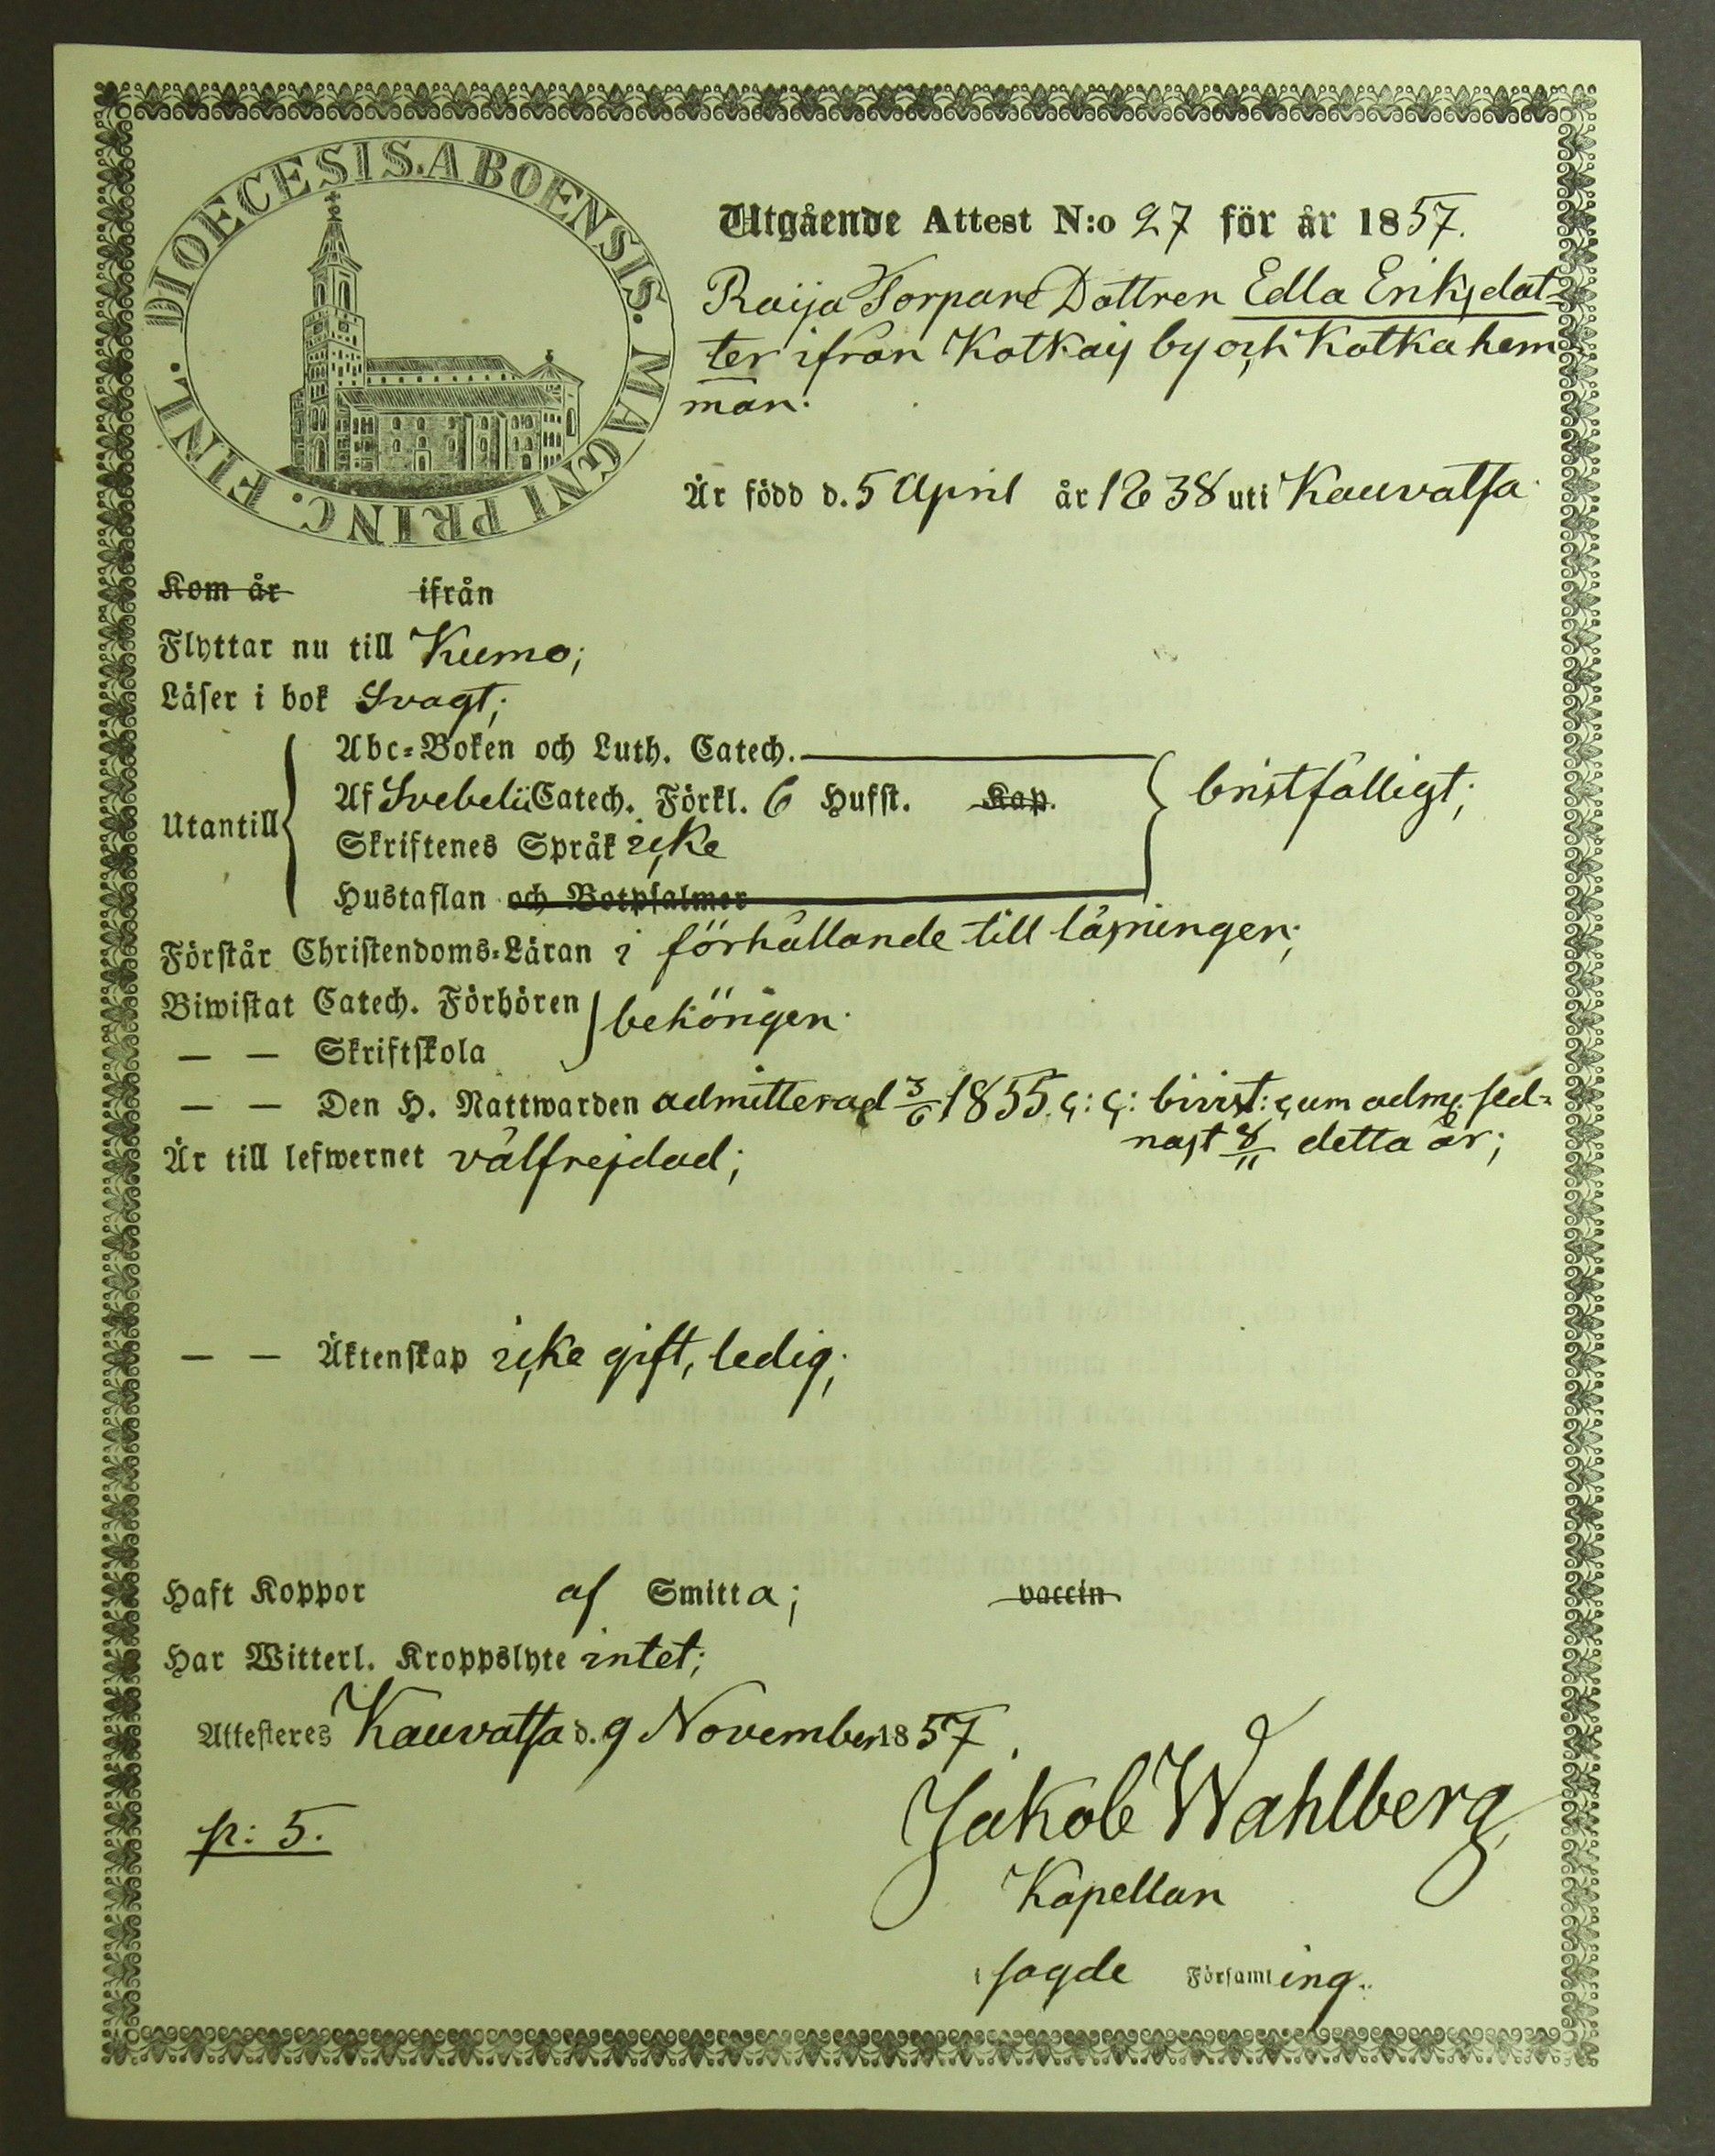 DIOECESIS. ABOENSIS. MAGNI PRINC. FINL.
Utgående Attest N:o 27 för år 1857.
Raija Torpare Dottren Edla Eriksdot-
ter ifrån Kotkais by och Kotka hem-
man.
Är född d. 5 April år 1838 uti Kauvatsa
Kom år ifrån
Flyttar nu till Kumo;
Läser i bok Svagt;
Abc-Boken och Luth. Catech.
Utantill Af Svebelii Catech. Förkl. 6 Hufst. Kap. bristfälligt;
Skriftenes Språk icke
Hustaflan och Botpsalmer
Förstår Christendoms-Läran i förhållande till läsningen;
Biwistat Catech. Förhören behörigen.
— — Skriftskola
— — Den H. Nattwarden admitterad 3/6 1855. c: c: bivist: cum adm. sed-
nast 8/11 detta år;
Är till lefwernet välfrejdad;
— — Äktenskap icke gift, ledig;
Haft Koppor af Smitta; vaccin
Har Witterl. Kroppslyte intet;
Attesteres Kauvatsa d. 9 November 1857.
p: 5.
Jakob Wahlberg,
Kapellan
i sagde Församling.